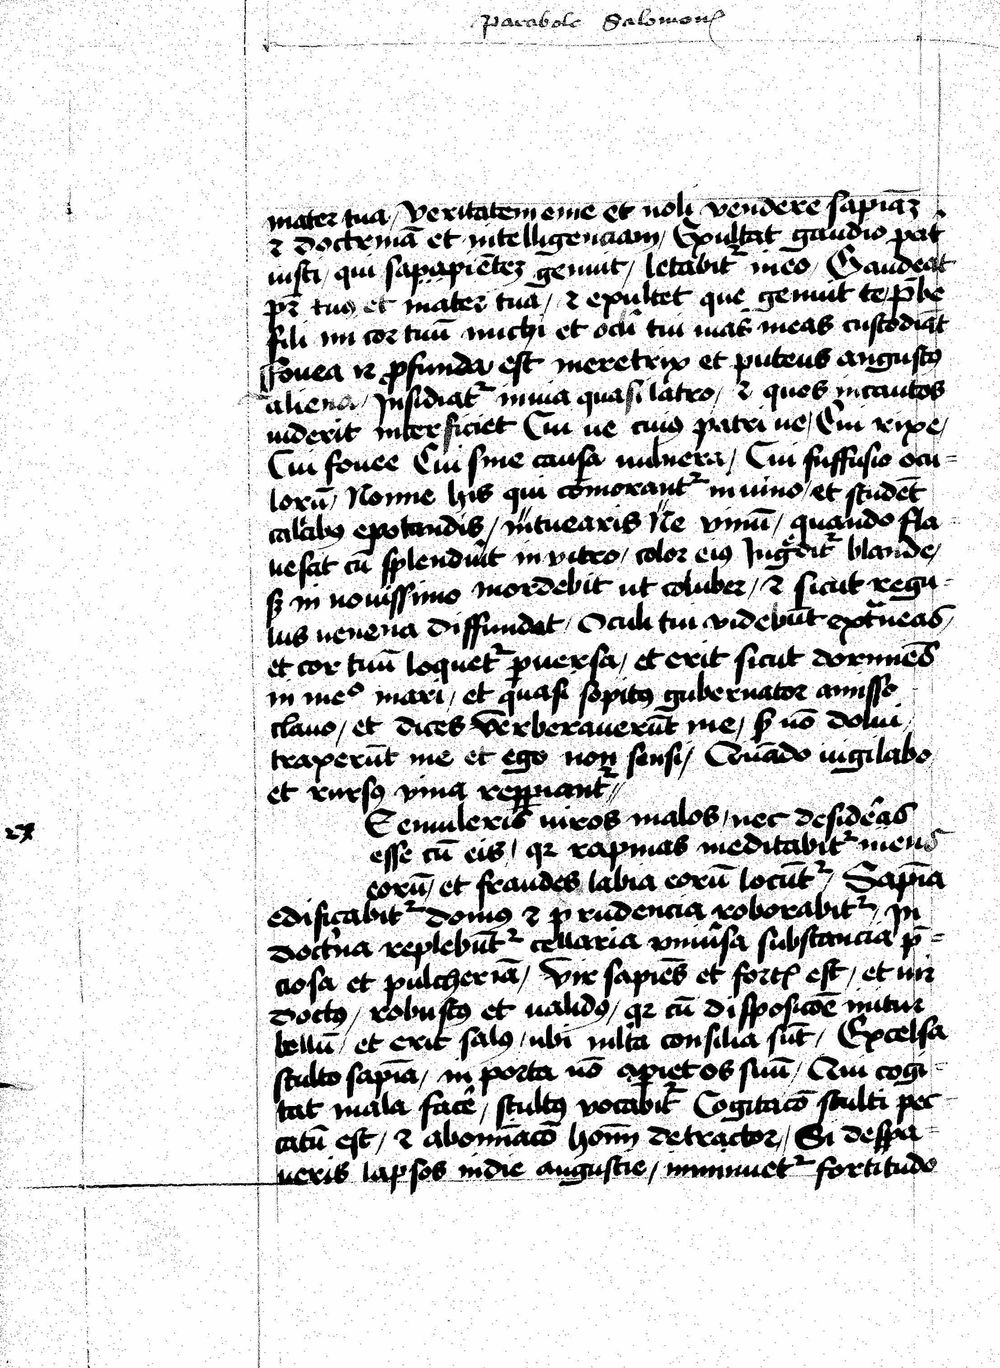 Parabole Salomonꝭ
mater tua / Veritatem eme et noli vendere sapiaꝫ
⁊ doctrinā et intelligenciam / Exultat gaudio pat
iusti / qui sapapiētez genuit / letabit᷑ in eo / Gaudeat
pr̄ tuꝰ et mater tua / ⁊ exultet que genuit te p̄be
fili mi cor tuū michi et oculi tui vias meas custodiāt
fouea .n. ꝓfunda est meretrix et puteus angustꝰ
aliena / Insidiat᷑ in via quasi latro / ⁊ quos incautos
viderit interficiet Cui ve cuiꝰ patri ve / Cui rixe /
Cui fouee Cui sine causa vulnera / Cui suffusio ocu=
lorū / Nonne his qui cōmorant᷑ in vino / et studēt
calicibꝰ epotandis / intuearis Ne vinū / quando fla=
uescit cū splenduit in vitro / color eiꝰ Ingredit᷑ blande /
sꝫ in nouissimo mordebit ut coluber / ⁊ sicut regu=
lus venena diffundet / Oculi tui videbūt extraneas /
et cor tuū loquet᷑ ꝑuersa / et erit sicut dormiēs
in meº mari / et quasi sopitꝰ gubernator amisso
clauo / et dices Verberauerūt me / sꝫ nō dolui /
traxerūt me et ego non sensi / Quādo vigilabo
et rursꝰ vina reperiant᷑ //
Eemuleris viros malos / nec desideras
esse cū eis / qꝛ rapinas meditabit᷑ mens
eorū / et fraudes labia eorū locūt᷑ / Sapiā
edificabit᷑ domꝰ ⁊ prudencia roborabit᷑ / In
doctrina replebūt᷑ cellaria vniūsa substancia p̄=
ciosa et pulcheriā / Vir sapiēs et fortꝭ est / et vir
doctꝰ / robustꝰ et validꝰ / qꝛ cū disposicōe initur
bellū / et erit salꝰ / vbi mlta consilia sūt / Excelsa
stulto sapiā / in porta nō apiet os suū / Qui cogi=
tat mala facē / stultꝰ vocabit᷑ Cogitacō stulti pec
catū est / ⁊ abominacō homī detractor / Si despa=
ueris lapsos in die angustie / imminuet᷑ fortitudo